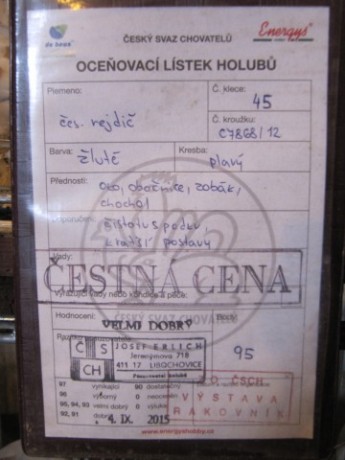 de heus
ČESKÝ SVAZ CHOVATELŮ
Energys®
OCEŇOVACÍ LÍSTEK HOLUBŮ
Plemeno:
čes. rejdič
Č. klece:
45
Č. kroužku:
C7868/12
Barva:
žlutě
Kresba:
plavý
Přednosti:
oko, obočnice, zobák,
chochol
Doporučení:
čistotu spodku,
kratší postavy
Vady:
ČESTNÁ CENA
Vylučující vady nebo kondice a péče:
ČESKÝ SVAZ CHOVATELŮ
Hodnocení:
VELMI DOBRÝ
Body:
95
Č S
CH
JOSEF ERLICH
Jeronýmova 718
411 17 LIBOCHOVICE
Posuzovatel holubů
97 vynikající 90 dostatečný
96 výborný 0 neoceněn
95, 94, 93 velmi dobrý 0 výluka
92, 91 dobrý
4. IX. 2015
Z.O. ČSCH
VÝSTAVA
RAKOVNÍK
www.energyshobby.cz